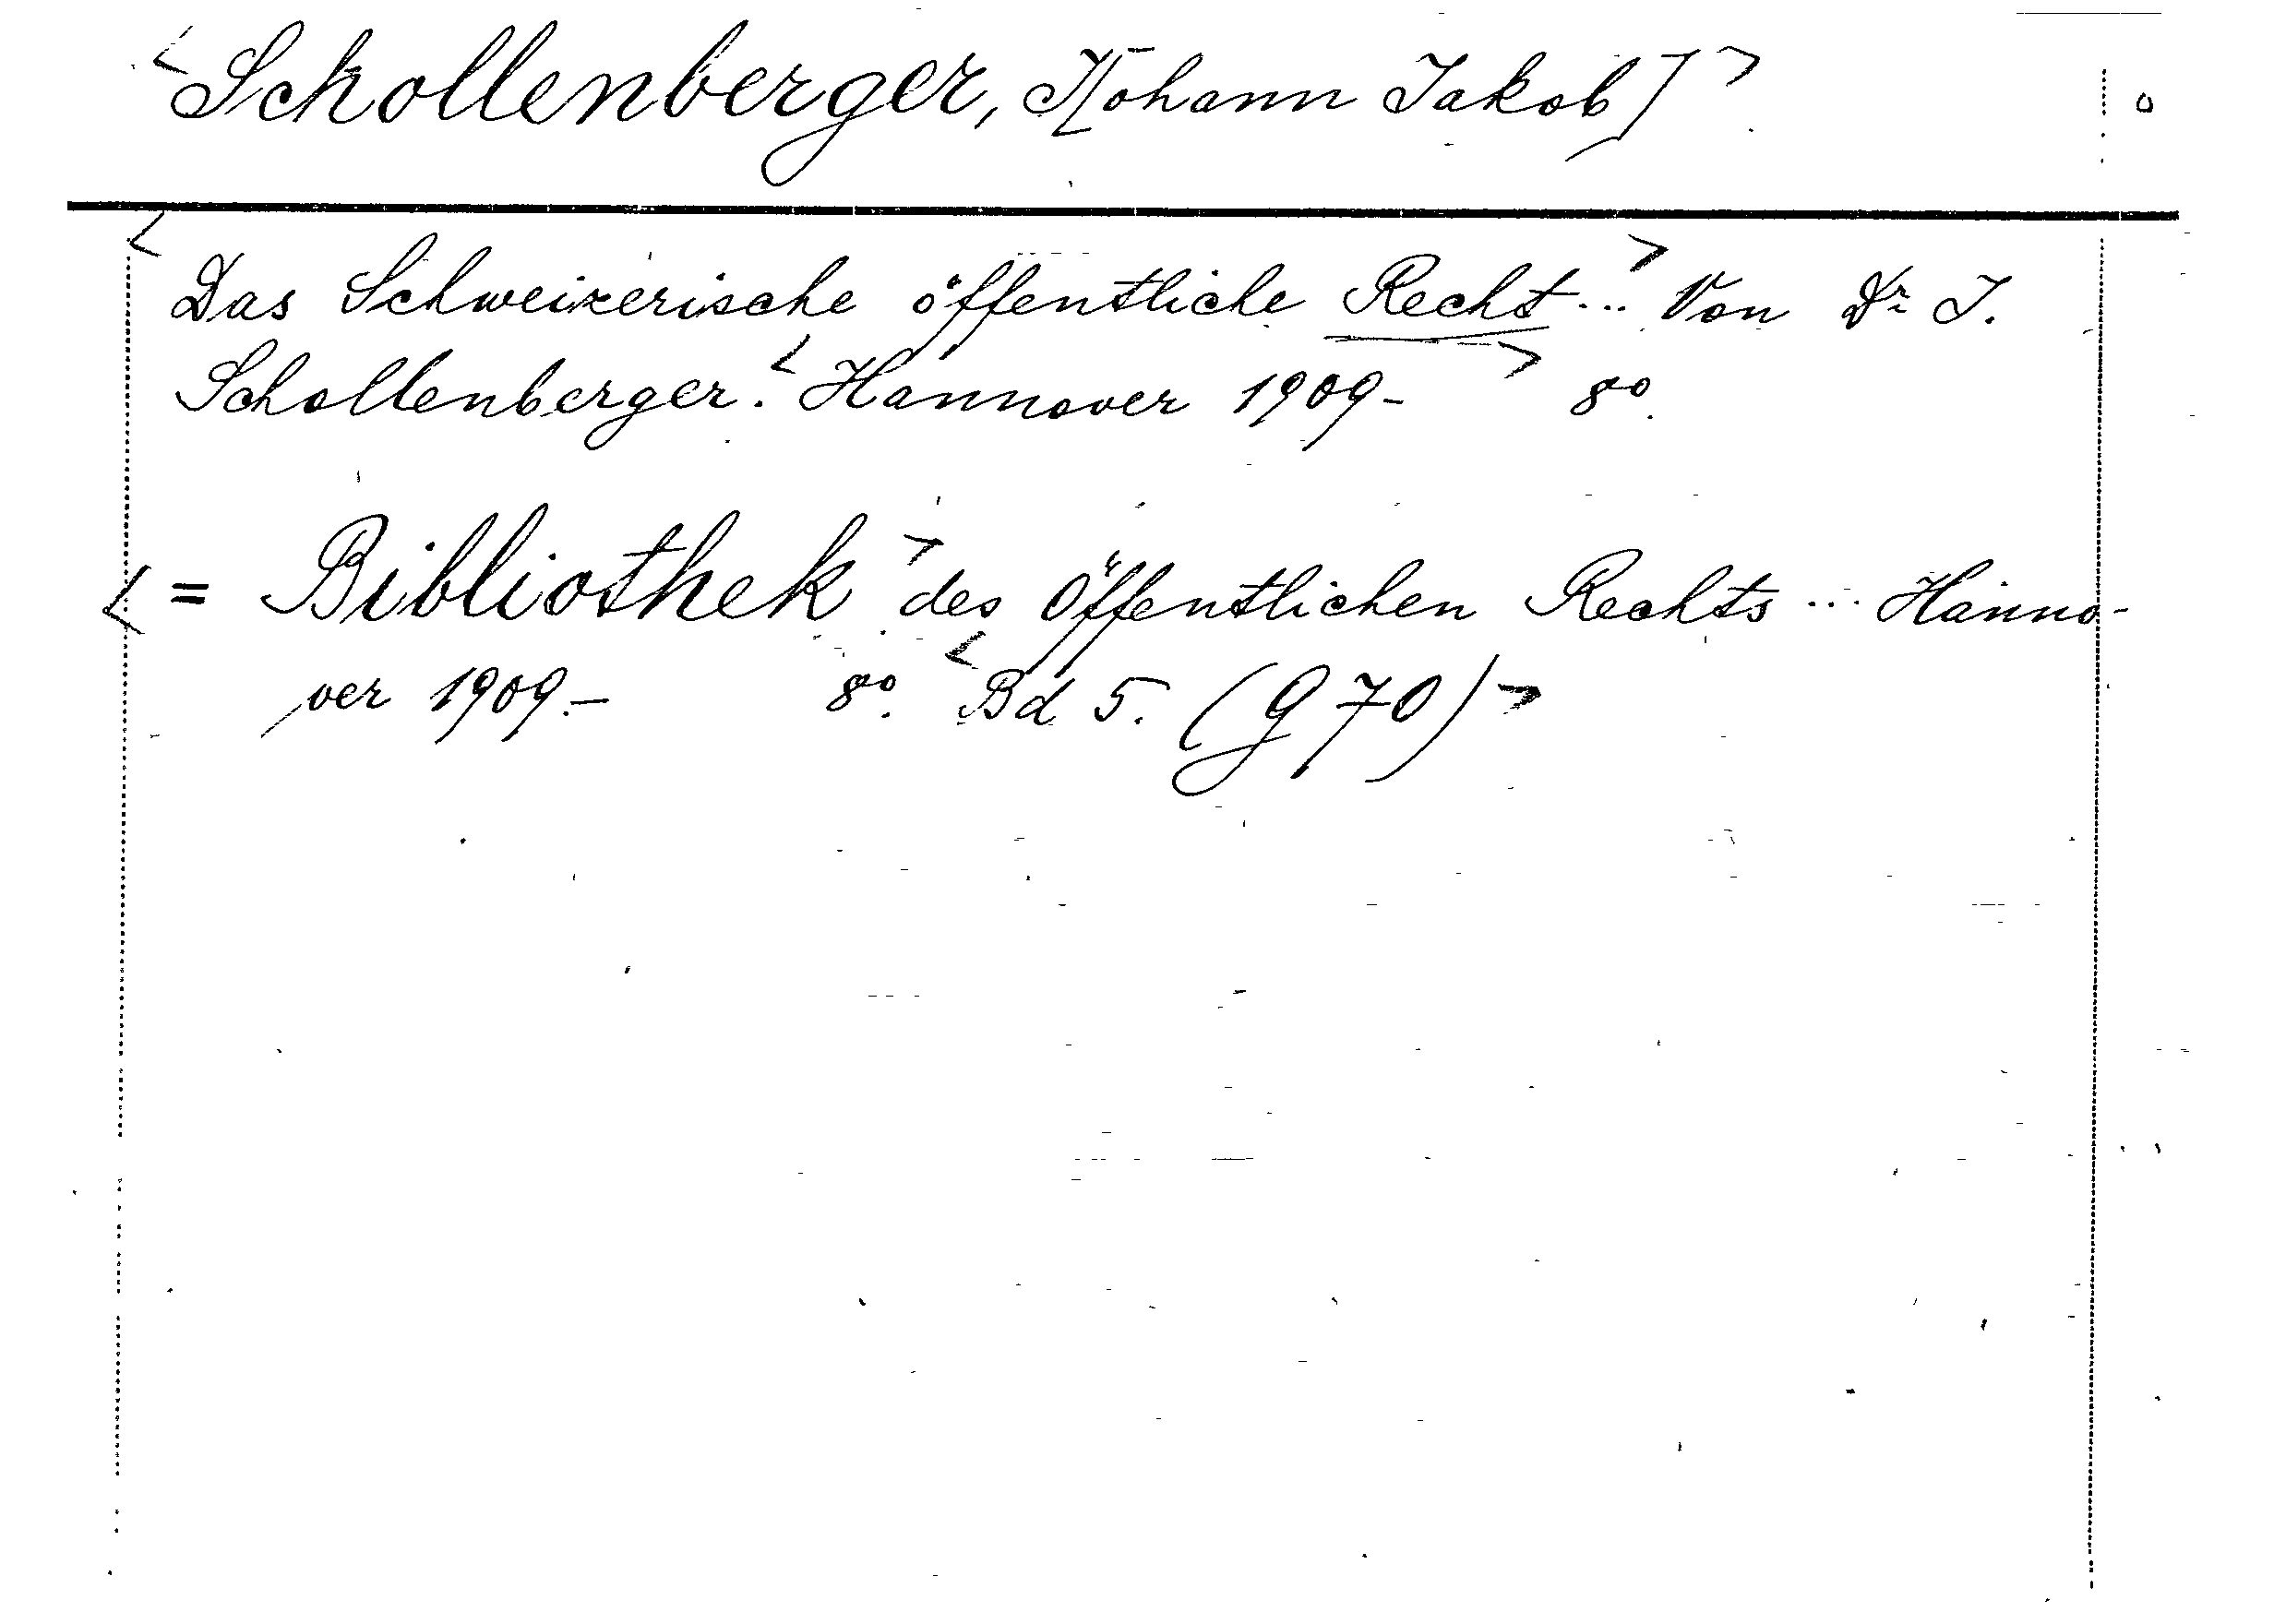 <Schollenberger, J[ohann Jakob]>
<Das Schweizerische öffentliche Recht...> Von Dr J.
Schollenberger. <Hannover 1909-> 8º.
<= Bibliothek> des Öffentlichen Rechts... Hanno-
ver 1909.- 8º. <Bd 5. (G 70)>